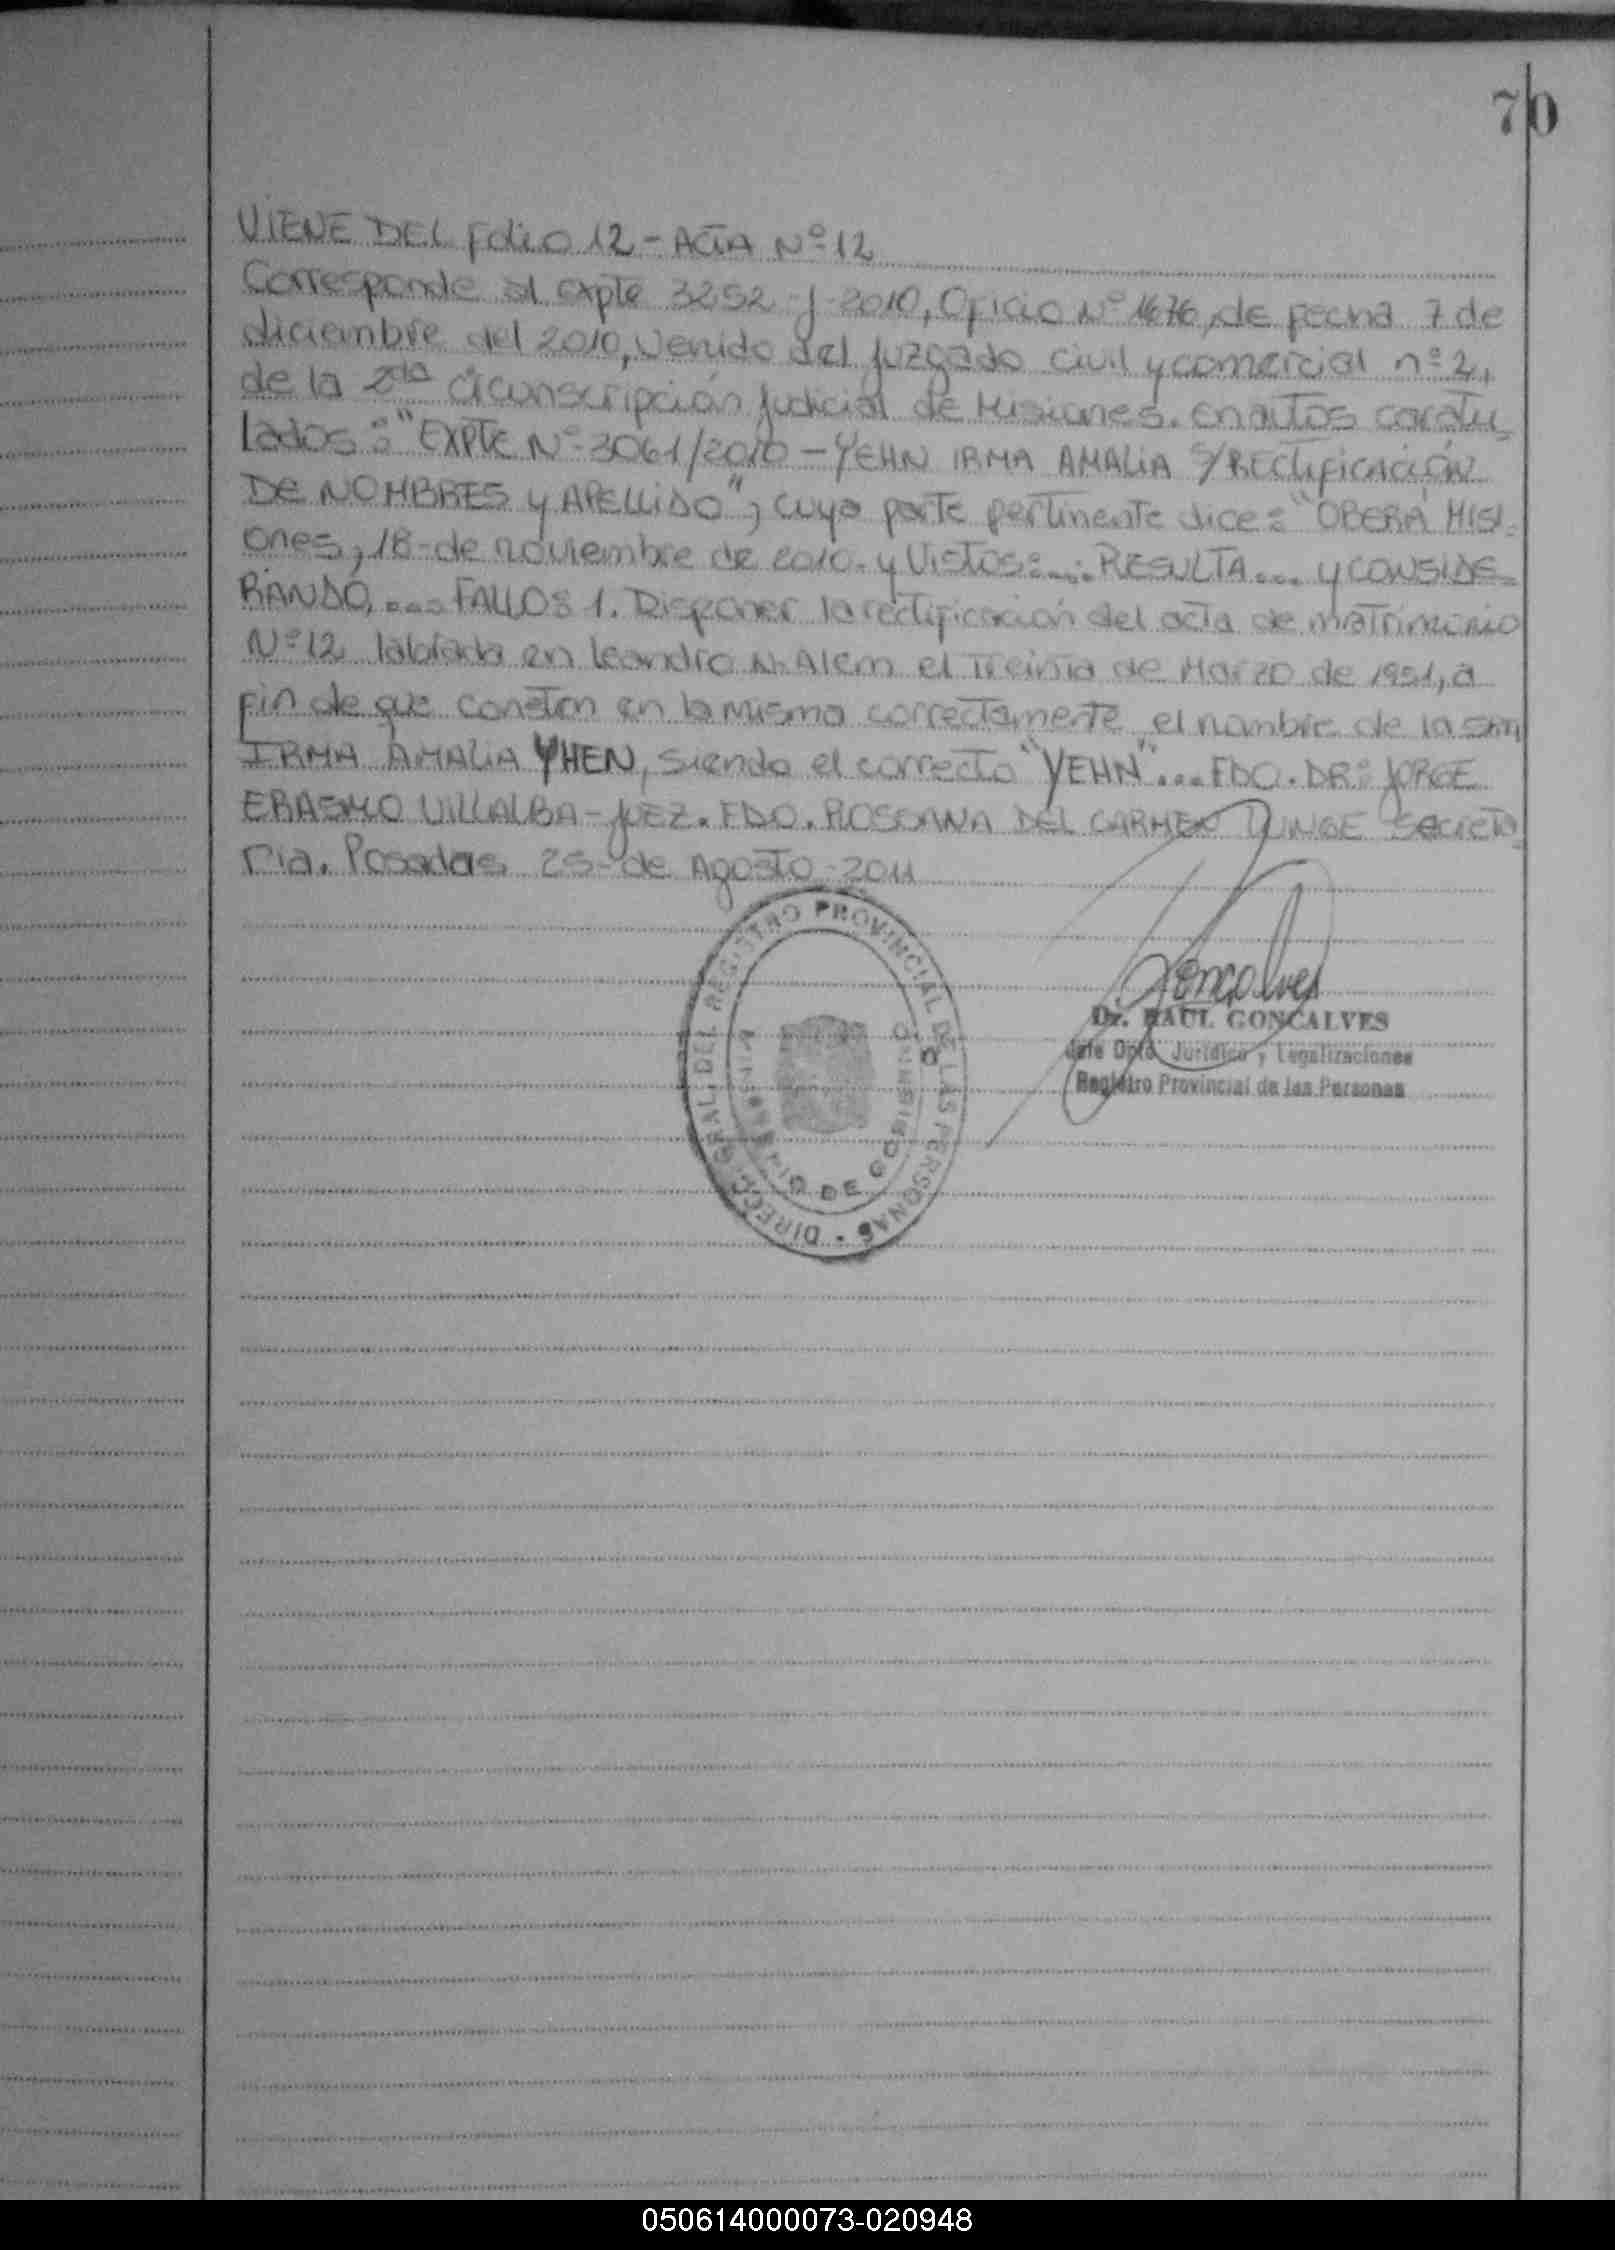 70
VIENE DEL Folio 12 - ACTA Nº 12
Corresponde al expte 3252-J-2010, Oficio Nº 1676, de fecha 7 de
diciembre del 2010, venido del Juzgado civil y comercial nº 2,
de la 2da circunscripción Judicial de Misiones. en autos caratu-
lados: "EXPTE Nº 3061/2010 - YEHN IRMA AMALIA S/RECTIFICACIÓN
DE NOMBRES y APELLIDO", cuya parte pertinente dice: "OBERÁ MISI-
ones, 18-de noviembre de 2010. y Vistos:...RESULTA... y CONSIDE-
RANDO,...FALLO: 1. Disponer la rectificación del acta de matrimonio
Nº 12 labrada en Leandro N. Alem el treinta de Marzo de 1951, a
fin de que consten en la misma correctamente el nombre de la Sra
IRMA AMALIA YHEN, siendo el correcto "YEHN"...FDO. DR: JORGE
ERASMO VILLALBA - JUEZ. FDO. ROSSANA DEL CARMEN secreta-
ria. Posadas 25-de Agosto-2011
DIRECC. GRAL. DEL REGISTRO PROVINCIAL DE LAS PERSONAS
MINISTERIO DE GOBIERNO
Goncalves
Dr. RAUL GONCALVES
Jefe Dpto. Jurídico y Legalizaciones
Registro Provincial de las Personas
050614000073-020948